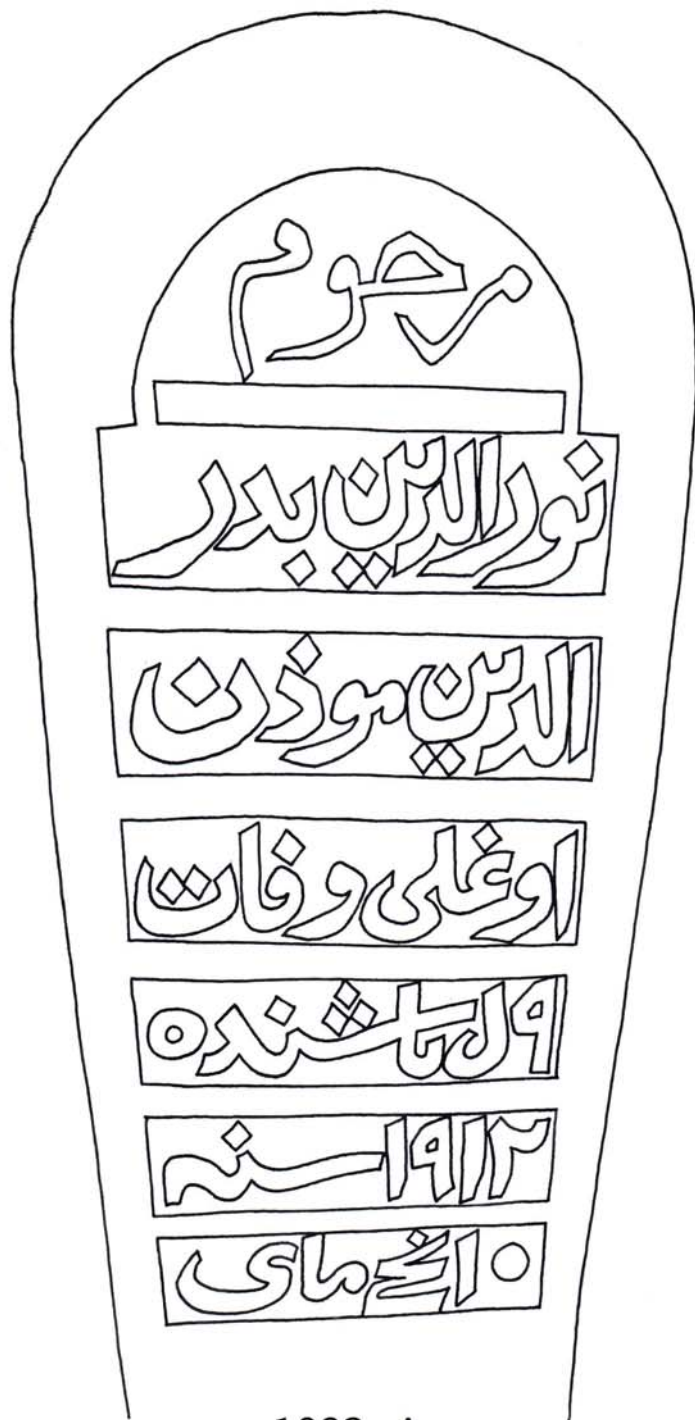 مرحوم
نورالدين بدر
الدين موذن
اوغلى وفات
ياشنده
١٩١٢ سنه
٥ انچ ماى